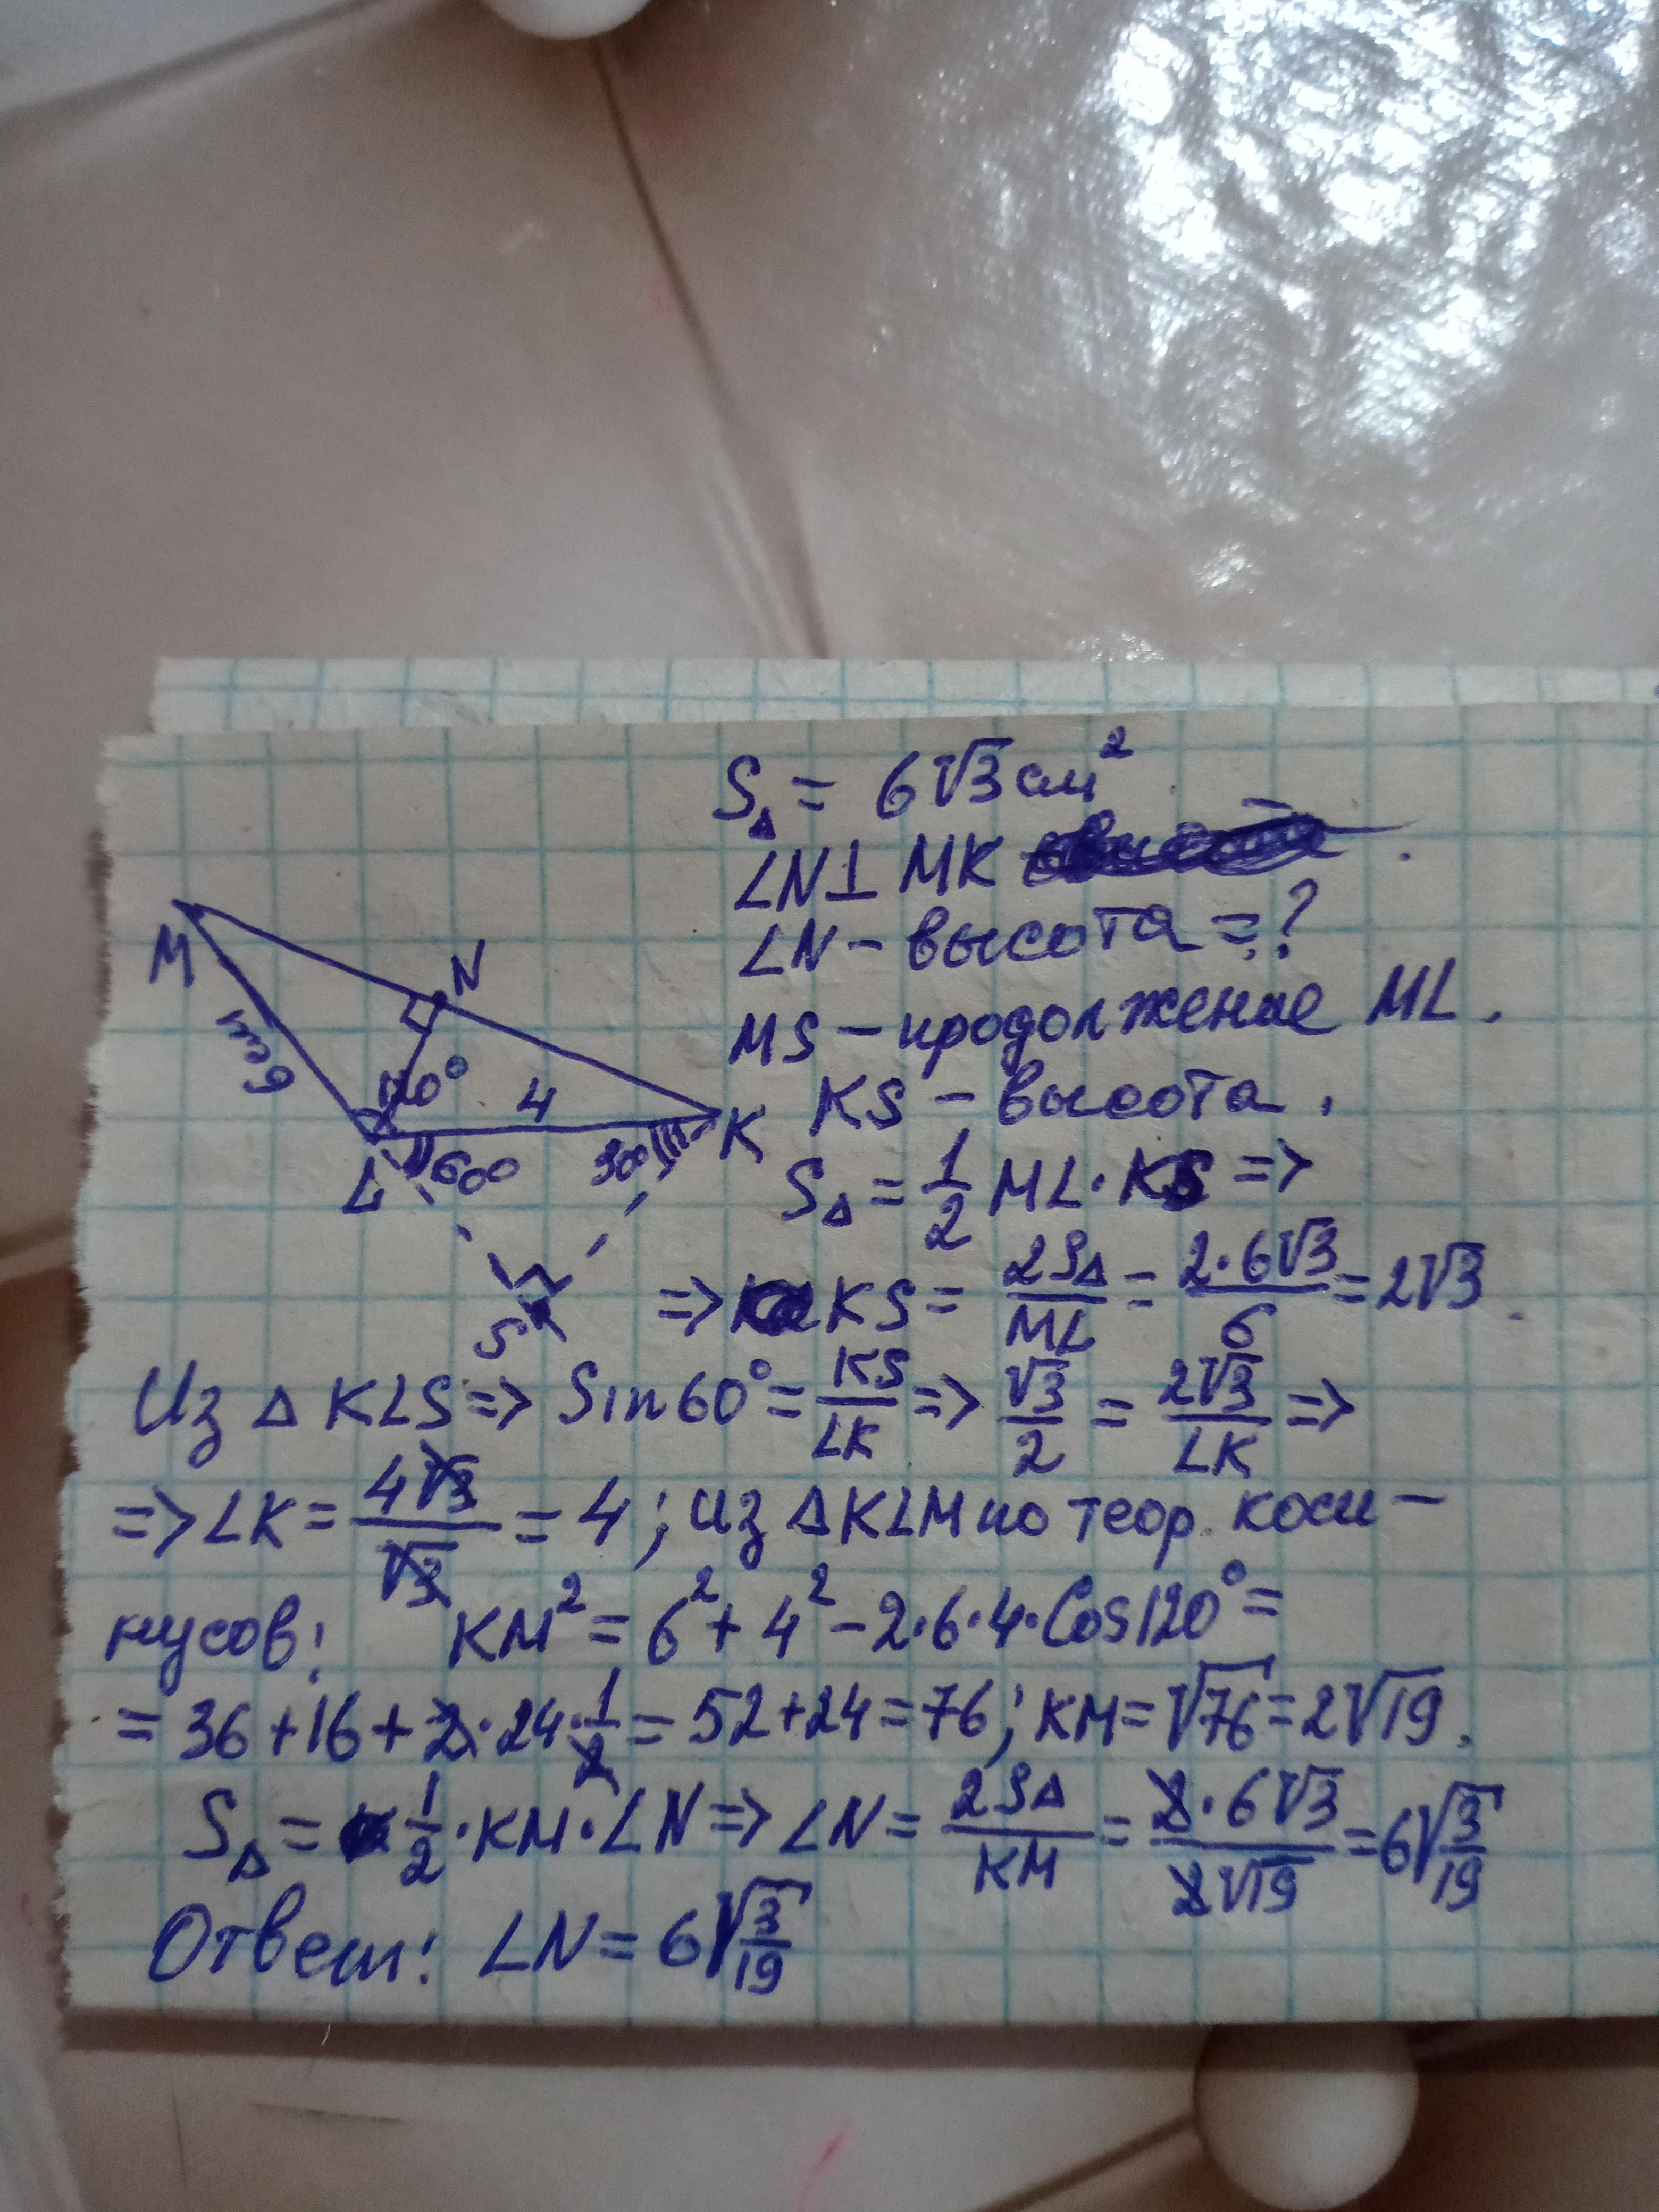 S△ = 6√3 см²
LN ⊥ MK
LN – высота = ?
MS – продолжение ML.
KS – высота.
S△ = 1/2 ML · KS =>
=> KS = 2S△/ML = 2·6√3/6 = 2√3
M
N
6см
120°
4
K
L
60°
30°
S
Из △ KLS => Sin60° = KS/LK => √3/2 = 2√3/LK =>
=> LK = 4√3/√3 = 4; из △KLM по теор. коси–
нусов: KM² = 6² + 4² – 2·6·4·Cos120° =
= 36 + 16 + 2·24·1/2 = 52 + 24 = 76; KM = √76 = 2√19.
S△ = 1/2 · KM · LN => LN = 2S△/KM = 2·6√3/2√19 = 6√3/19
Ответ: LN = 6√3/19